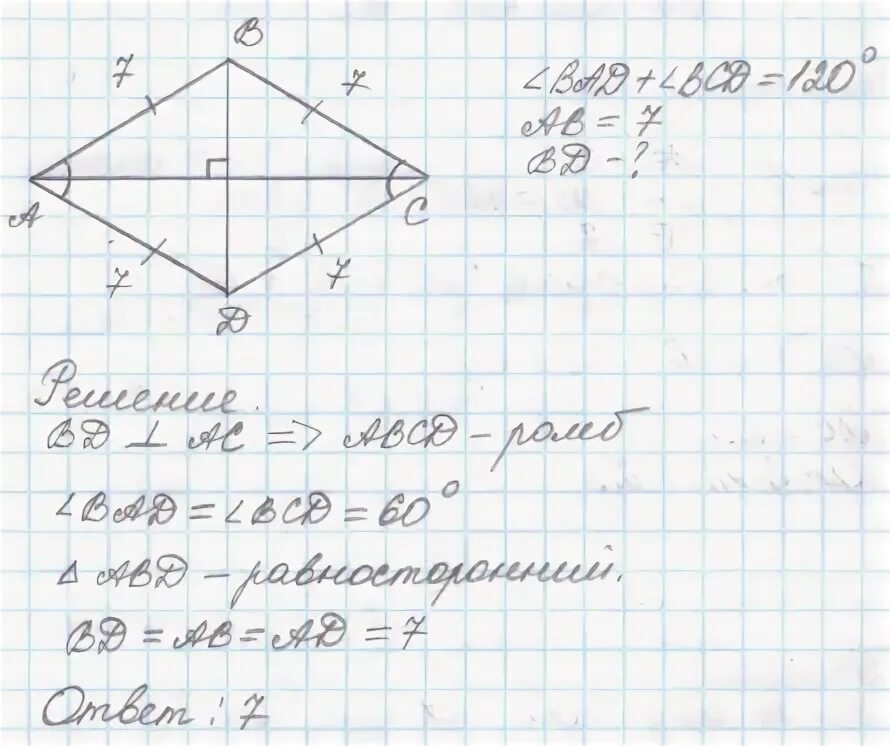 B
7
7
∠BAD + ∠BCD = 120°
AB = 7
BD - ?
A
C
7
7
D
Решение.
BD ⊥ AC => ABCD - ромб
∠BAD = ∠BCD = 60°
△ ABD - равносторонний.
BD = AB = AD = 7
Ответ: 7